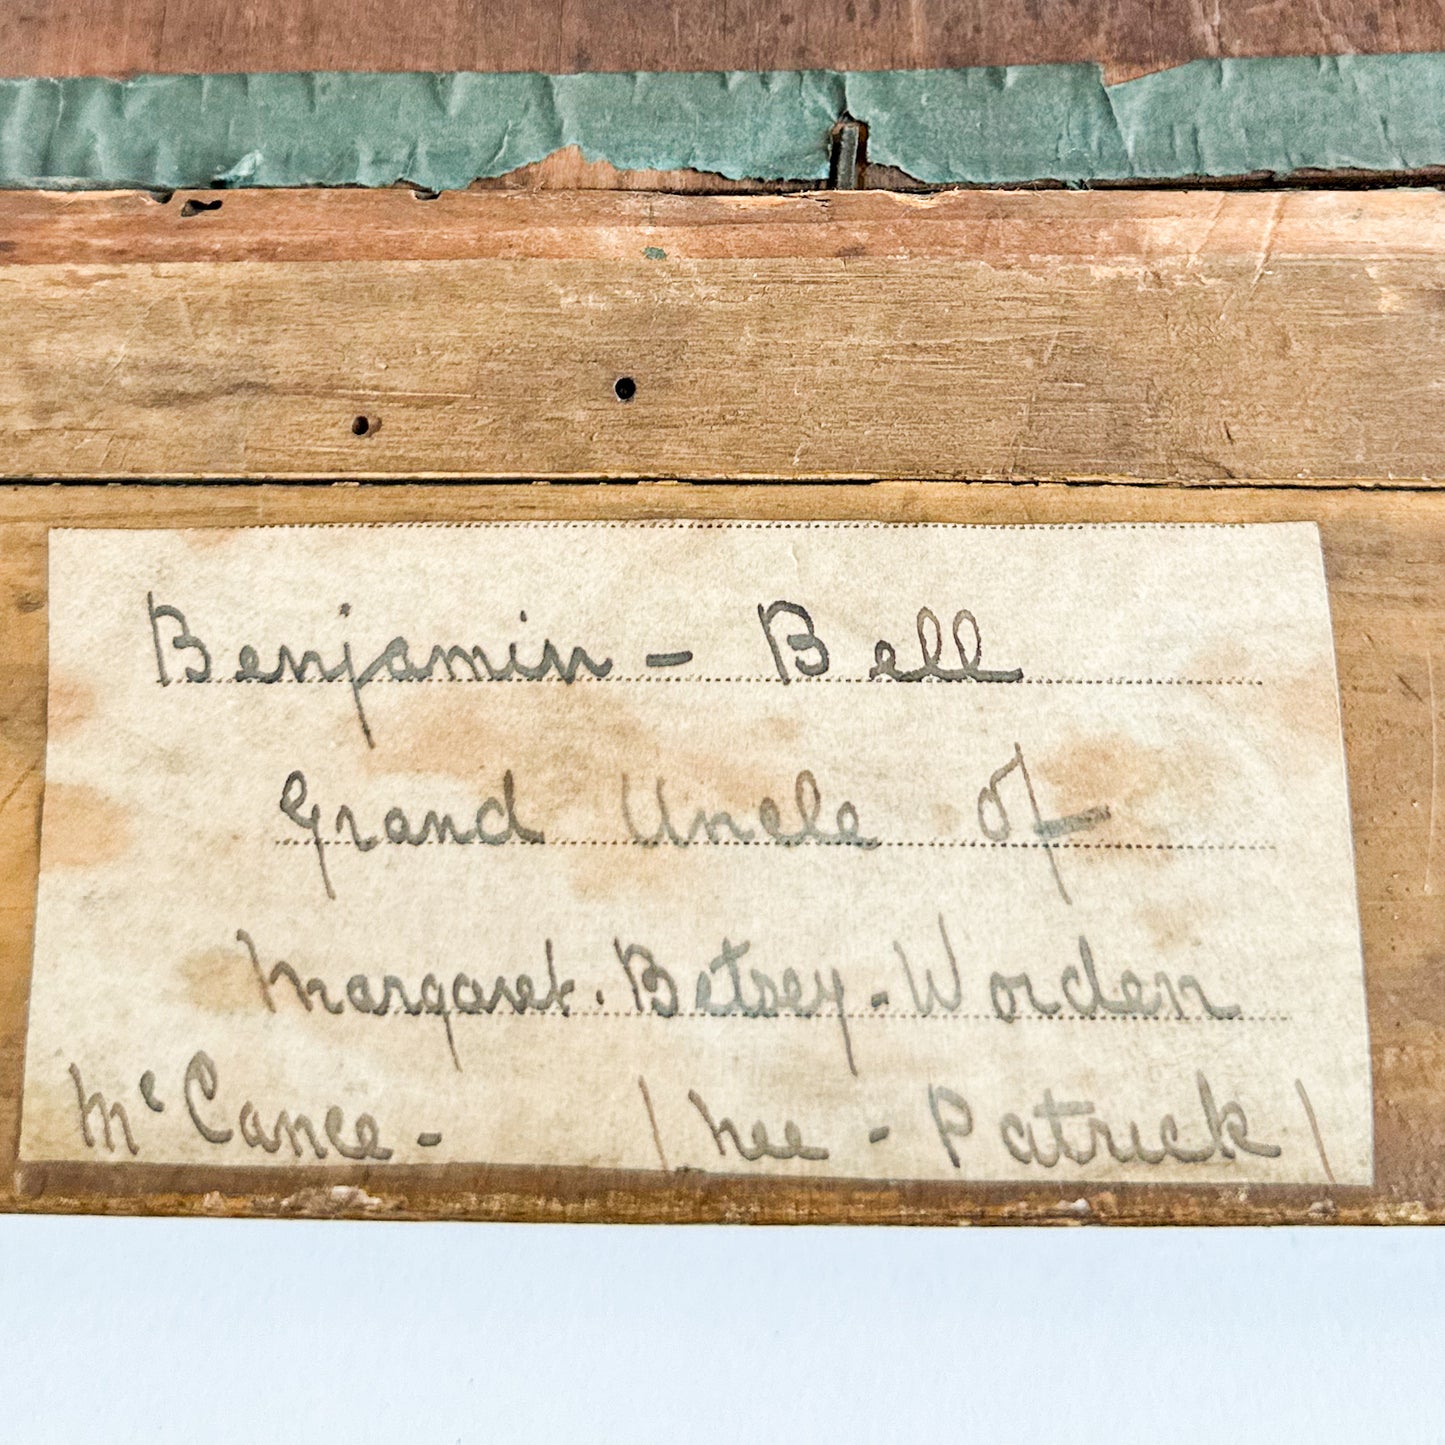 Benjamin - Bell
Grand Uncle of
Margaret. Betsey - Worden
McCance - / nee - Patrick /